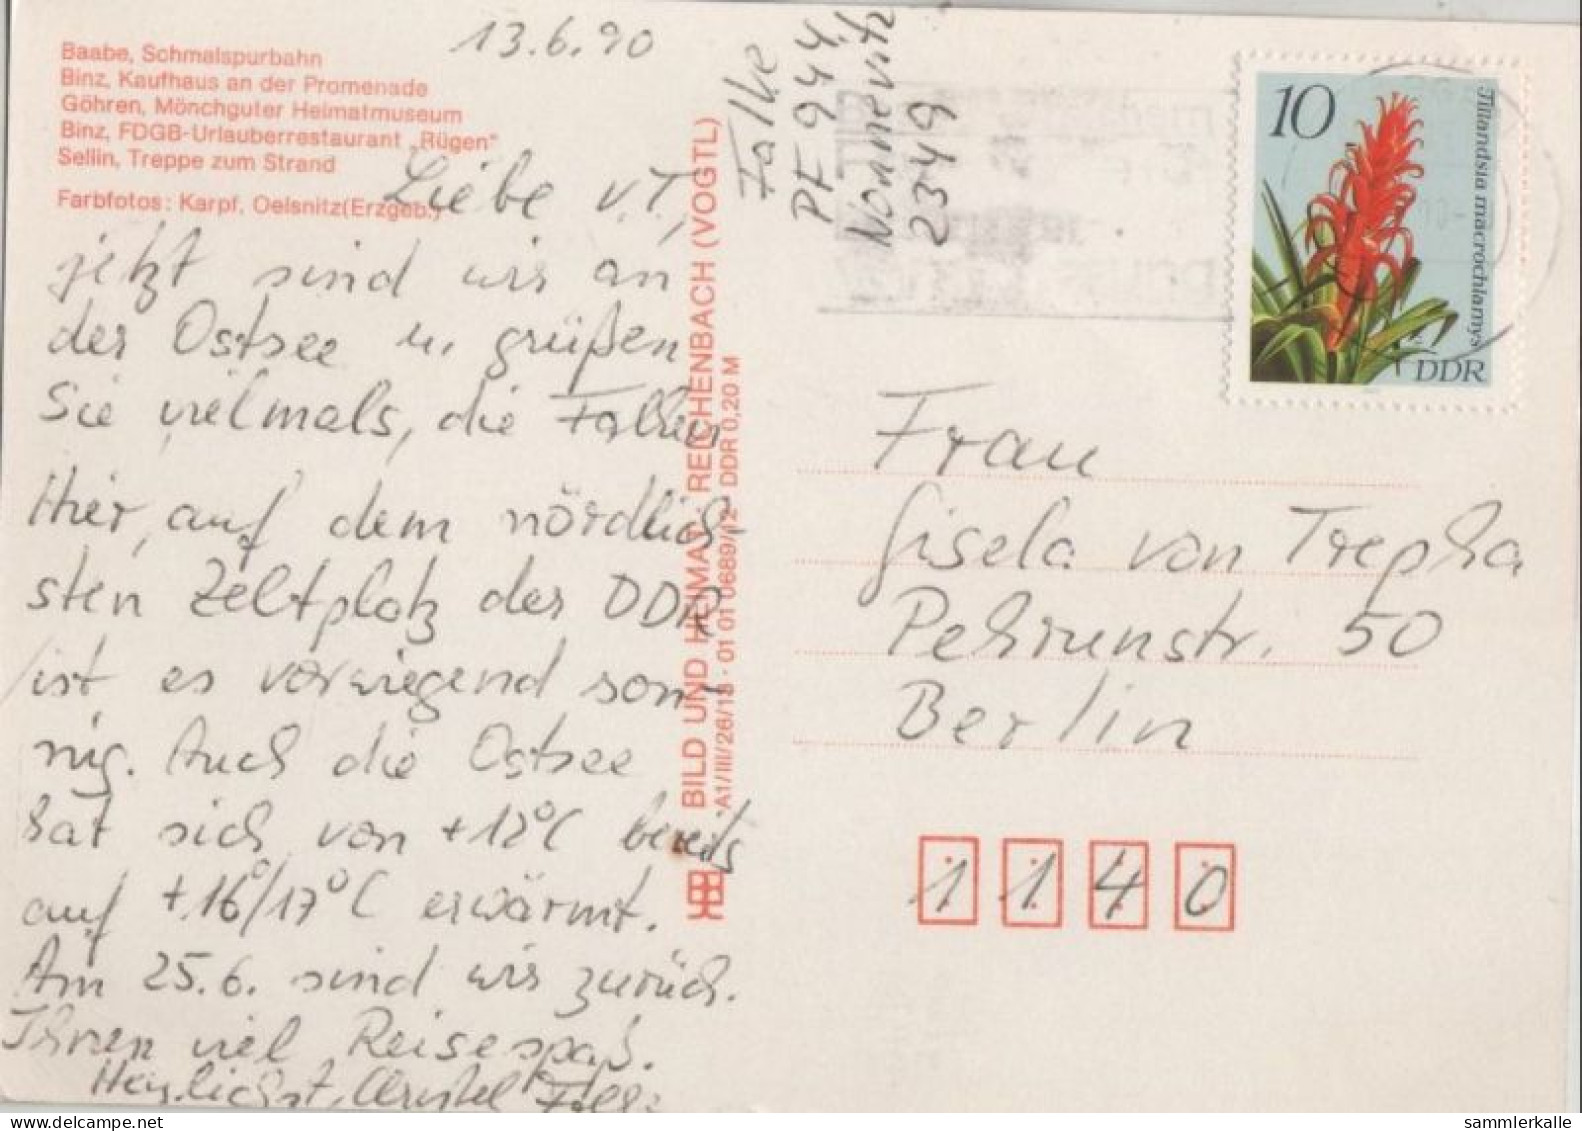 13.6.90
Baabe, Schmalspurbahn
Binz, Kaufhaus an der Promenade
Göhren, Mönchguter Heimatmuseum
Binz, FDGB-Urlauberrestaurant „Rügen"
Sellin, Treppe zum Strand
Farbfotos: Karpf, Oelsnitz(Erzgeb.)
Liebe v.T.,
jetzt sind wir an
der Ostsee u. grüßen
Sie vielmals, die Falken
Hier, auf dem nördlich-
sten Zeltplatz der DDR
ist es vorwiegend son-
nig. Auch die Ostsee
hat sich von +12°C bereits
auf +16°/17°C erwärmt.
Am 25.6. sind wir zurück.
Ihnen viel Reisespaß.
Herzlichst,
Falke
PF 944
Nonnevitz
2349
BILD UND HEIMAT REICHENBACH (VOGTL)
A1/III/26/13 · 01 01 0689/12 DDR 0,20 M
10
Tillandsia macrochlamys
DDR
Frau
Gisela von Trepha
Pehrunstr. 50
Berlin
1140
sammlerkalle